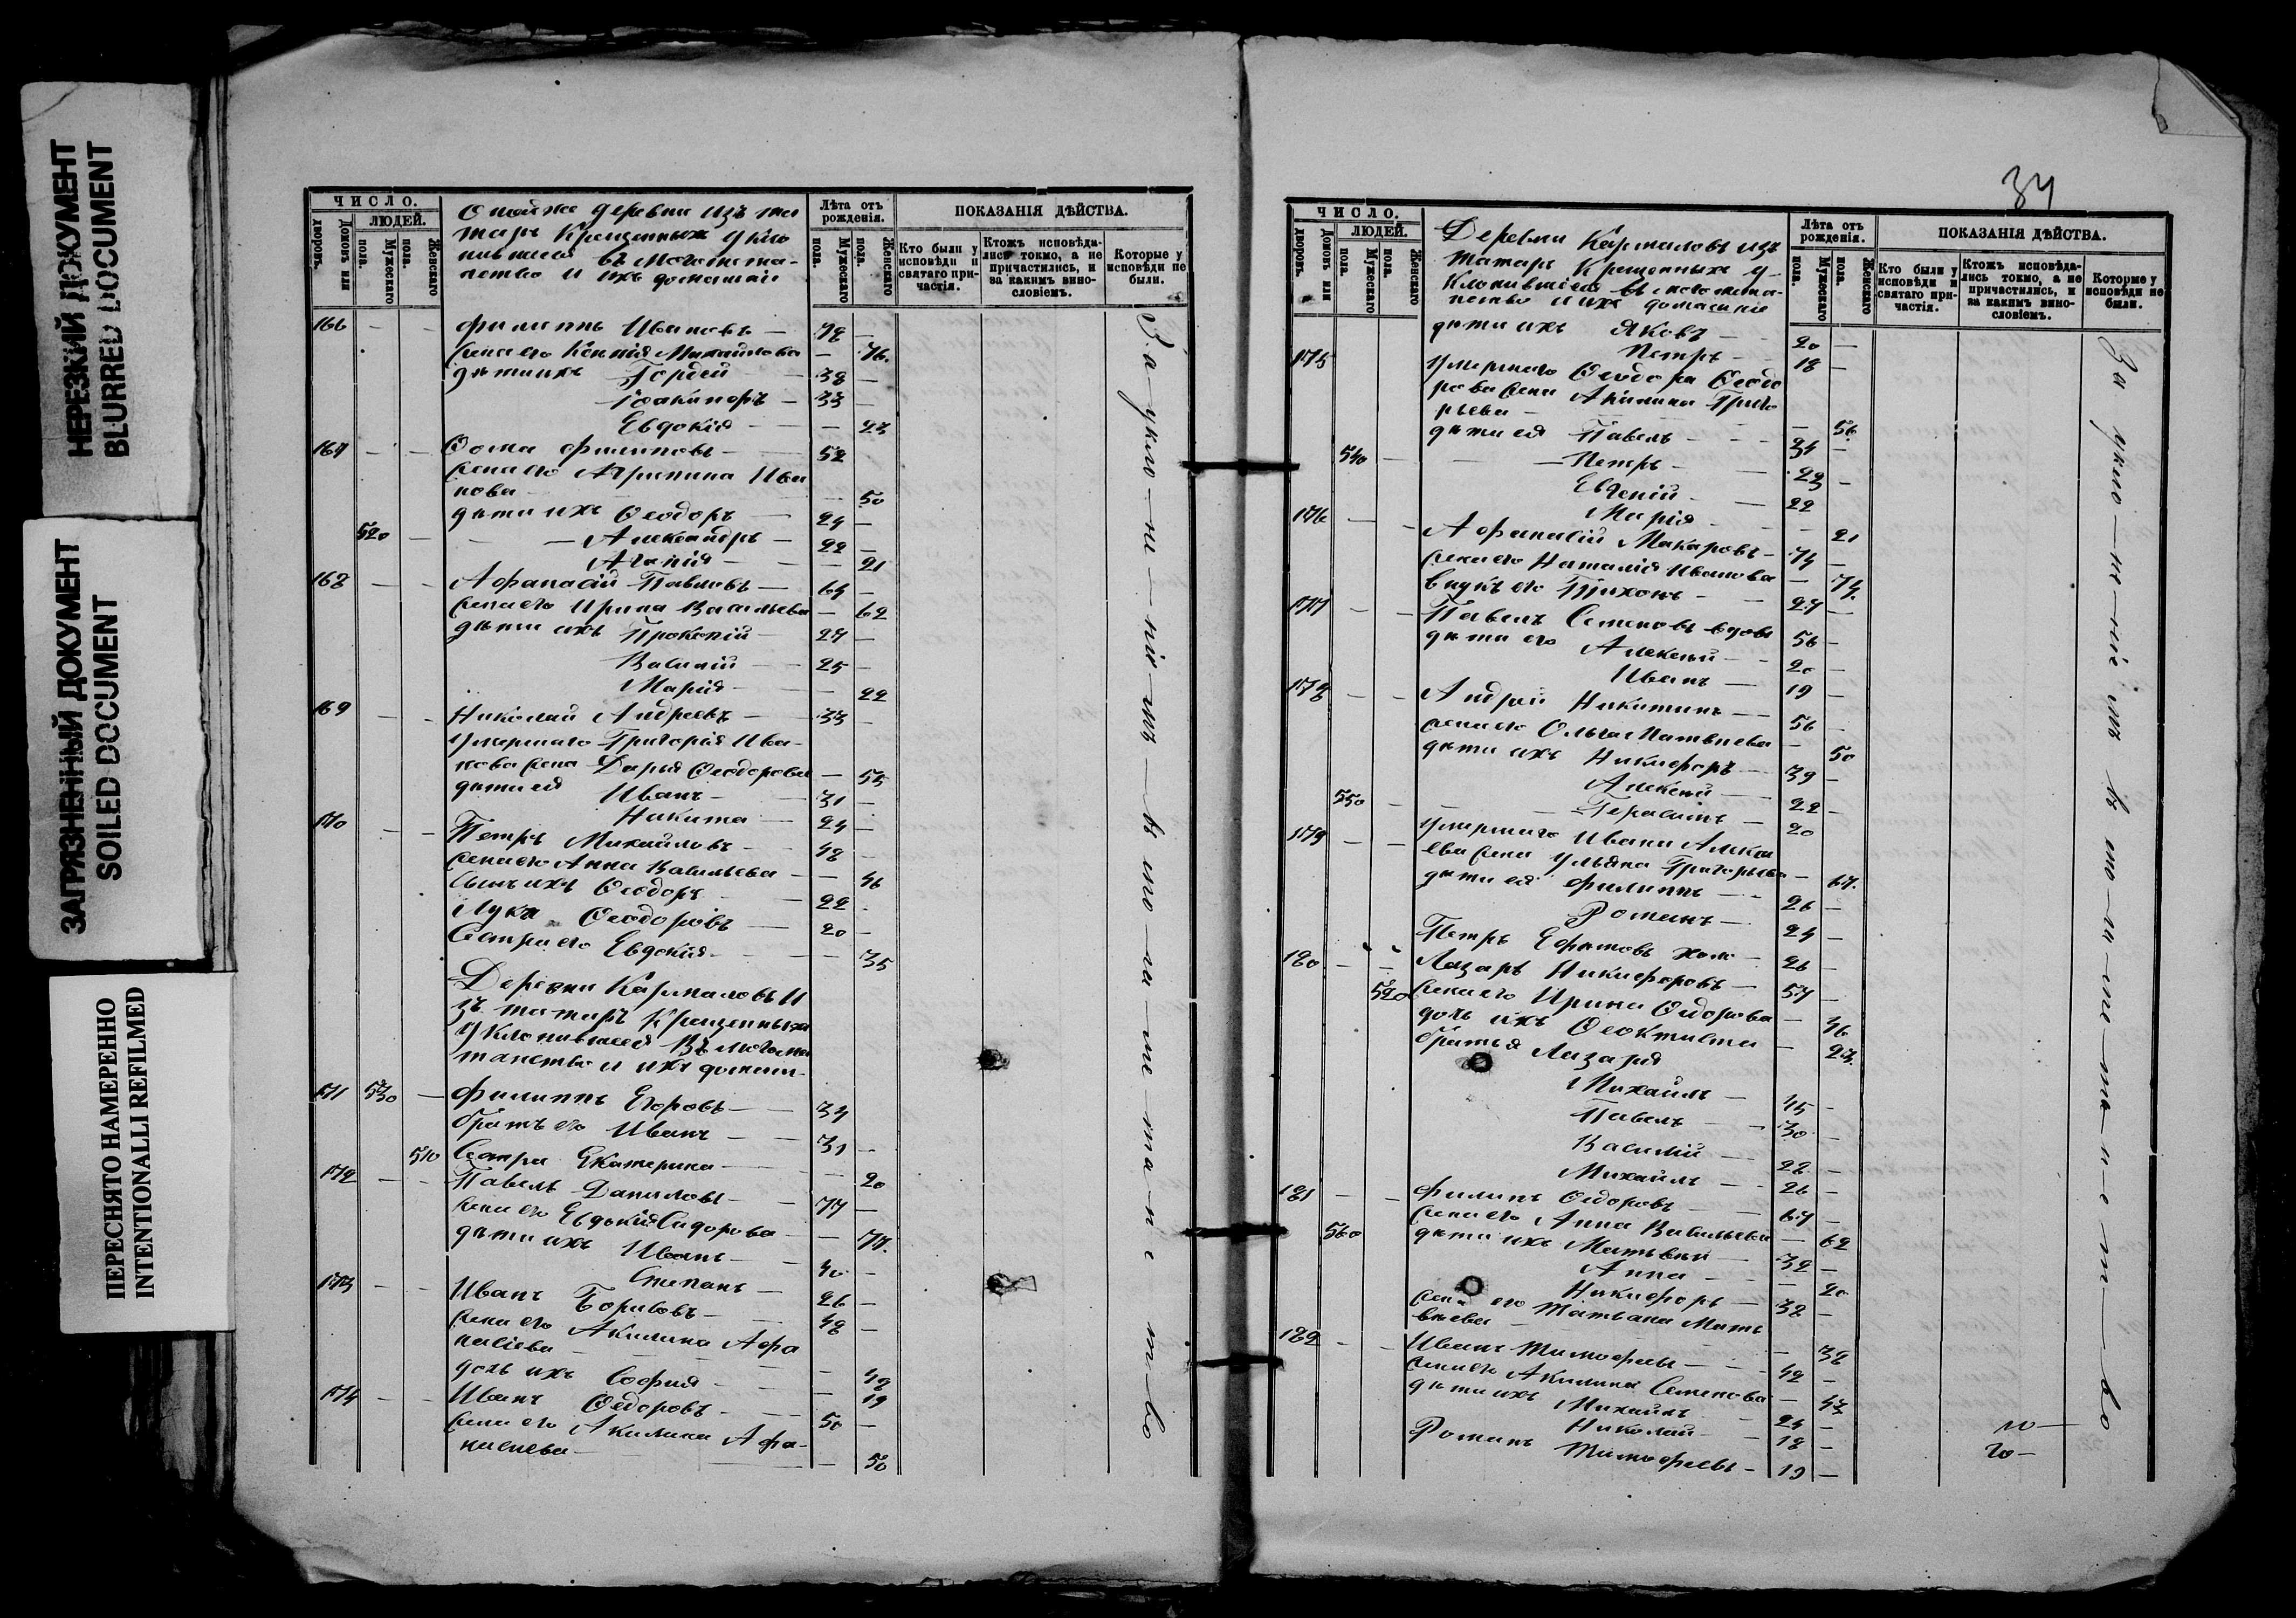 НЕРЕЗКИЙ ДОКУМЕНТ
BLURRED DOCUMENT
ЗАГРЯЗНЕННЫЙ ДОКУМЕНТ
SOILED DOCUMENT
ПЕРЕСНЯТО НАМЕРЕННО
INTENTIONALLI REFILMED
ЧИСЛО.
ЛЮДЕЙ.
Домовъ или дворовъ.
Мужескаго пола.
Женскаго пола.
деревни изъ та
таръ Крещенныхъ укло
нившиеся въ магомета-
нство и ихъ домашнiи
Лѣта отъ рожденія.
Мужескаго пола.
Женскаго пола.
ПОКАЗАНІЯ ДѢЙСТВА.
Кто были у исповѣди и святаго при-частія.
Ктожъ исповѣда-лись токмо, а не причастились, и за какимъ вино-словіемъ.
Которые у исповѣди не были.
166 — — Филиппъ Ивановъ — 78 —
жена его Ксенія Михайлова — 76.
дѣти ихъ Гордей 38 —
Іоакимъ — 33 —
Евдокія — — 23
167 — — Ѳома Филиповъ — 52
жена его Агрипина Ива
нова — — 50
дѣти ихъ Ѳеодоръ — 24 —
520 — — Александръ — 22 —
Агапія — — 21
168 — — Афанасій Павловъ — 64 —
жена его Ирина Васильева — 62
дѣти ихъ Прокопій — 27 —
Василій — 25 —
Марія — — 22
169 — — Николай Андреевъ — 33 —
умершаго Григорія Ива-
нова жена Дарья Ѳеодорова — 55
дѣти ея Иванъ — 31 —
Никита — 24 —
170 — — Петръ Михайловъ — 48 —
жена его Анна Васильева — — 46
сынъ ихъ Ѳеодоръ — 22
Лука Ѳеодоровъ — 20 —
Сестра его Евдокія — — 35
Деревни Кармаловъ И
зъ татаръ Крещенныхъ
Уклонившеся Въ магоме
танство и ихъ домаш-
171 530 — Филиппъ Егоровъ — 34
братъ его Иванъ — 31 —
510 Сестра Екатерина — 20
172 — — Павелъ Даниловъ — 77 —
жена его Евдокія Сидорова — 77.
дѣти ихъ Иванъ — 40 —
Степанъ — 26 —
173 — — Иванъ Борисовъ — 48 —
жена его Акилина Афа
насіева — — 48
дочь ихъ Софія — — 19
174 — — Иванъ Ѳедоровъ — 50 —
жена его Акилина Афа-
насиева — — 50
За укло-не-ніемъ-въ ма-го-ме-та-н-ство
34
ЧИСЛО.
ЛЮДЕЙ.
Домовъ или дворовъ.
Мужескаго пола.
Женскаго пола.
Деревни Кармаловъ изъ
Татаръ Крещенныхъ у-
клонившіеся въ магомета-
нство и ихъ домашніе
Лѣта отъ рожденія.
Мужескаго пола.
Женскаго пола.
ПОКАЗАНІЯ ДѢЙСТВА.
Кто были у исповѣди и святаго при-частія.
Ктожъ исповѣда-лись токмо, а не причастились, и за какимъ вино-словіемъ.
Которые у исповѣди не были.
дѣти ихъ Яковъ — 20 —
Петръ — 18 —
175 умершаго Ѳеодора Ѳеодо
рова жена Акилина Григо
рьева — — 56.
дѣти ея Павелъ — 34 —
540 — — Петръ — 23 —
Евгеній — 22
Марія — — 21
176 — — Афанасій Макаровъ — 74 —
жена его Наталія Иванова — 74.
внукъ его Тихонъ — 27 —
177 — — Павелъ Семеновъ вдовъ 56 —
дѣти его Алексѣй — 20 —
Иванъ — 19 —
178 — — Андрей Никитинъ — 56 —
жена его Ольга Матвѣева — 50
дѣти ихъ Никифоръ — 39 —
Алексѣй — 22 —
550 — — Герасимъ — 20
179 — — умершаго Ивана Алексѣ
ева жена Ульяна Григорьева — 67.
дѣти ея Филиппъ — 26 —
Романъ — 24 —
Петръ Ефимовъ холо — 26 —
180 — — Лазарь Никифоровъ — 57 —
520 жена его Ирина Ѳедорова — 46
дочь ихъ Ѳеоктиста — 23.
братья Лазаря
Михаилъ — 45 —
Павелъ — 30 —
Василій — 28 —
Михаилъ — 26 —
181 — — Филипъ Ѳедоровъ — 67 —
жена его Анна Васильева — 62
560 дѣти ихъ Матвѣй — 32 —
Анна — — 20
Никифоръ — 38 —
жена его Татьяна Матв
вѣева — — 38
182 — — Иванъ Тимофеевъ — 42 —
жена его Акилина Семенова — 43
дѣти ихъ Михаилъ — 24 —
Николай — 18 —
Романъ Тимофеевъ — 19 —
За укло-не-ніемъ въ ма-го-ме-та-н-с-т-во
10 —
20 —